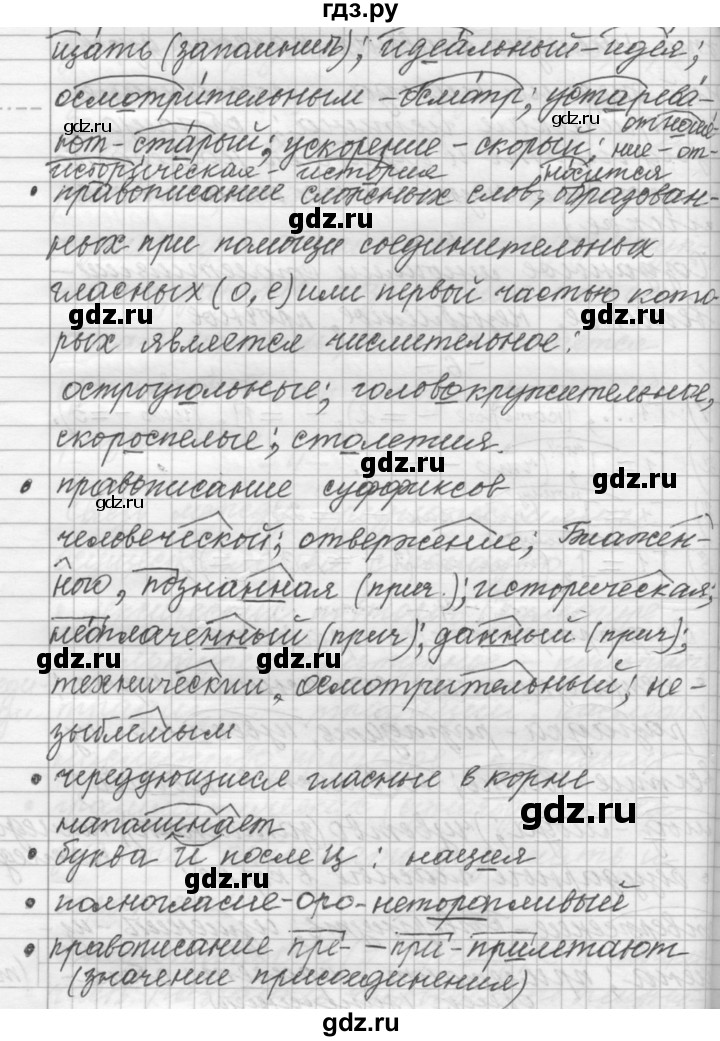 гдз.ру
щать (запомнить); идеальный - идея;
осмотрительным - осмотр; устарева-
gdz.ru gdz.ru отноше-
ют - старый; ускорение - скорый; ние - от-
историческая - история носится
• правописание сложных слов, образован-
gdz.ru
ных при помощи соединительных
гласных (о, е) или первый частью кото
gdz.ru gdz.ru
рых является числительное:
остроугольные; головокружительные,
скороспелые; столетия.
gdz.ru gdz.ru
• правописание суффиксов
gdz.ru
человеческой; отвержение; Блажен-
ного, познанная (прич.); историческая;
неоплаченный (прич); данный (прич);
gdz.ru gdz.ru
технический, осмотрительный; не-
зыблемым
• чередующиеся гласные в корне
gdz.ru
напоминает
• буква И после Ц: нация
gdz.ru
• полногласие - оро - неторопливый
• правописание пре- - при- прилетают
(значение присоединения)
gdz.ru gdz.ru